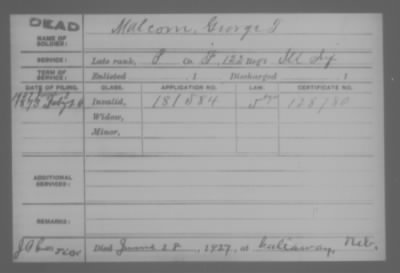 DEAD
NAME OF SOLDIER: Malcom, George T
SERVICE: Late rank, P Co. F, 122 Reg't Ill Inf
TERM OF SERVICE: Enlisted , 1 Discharged , 1
DATE OF FILING. CLASS. APPLICATION NO. LAW. CERTIFICATE NO.
1873 Invalid, 181884 128180
Widow,
Minor,
ADDITIONAL SERVICES:
REMARKS:
Died June 28, 1927, at Callaway, Neb.